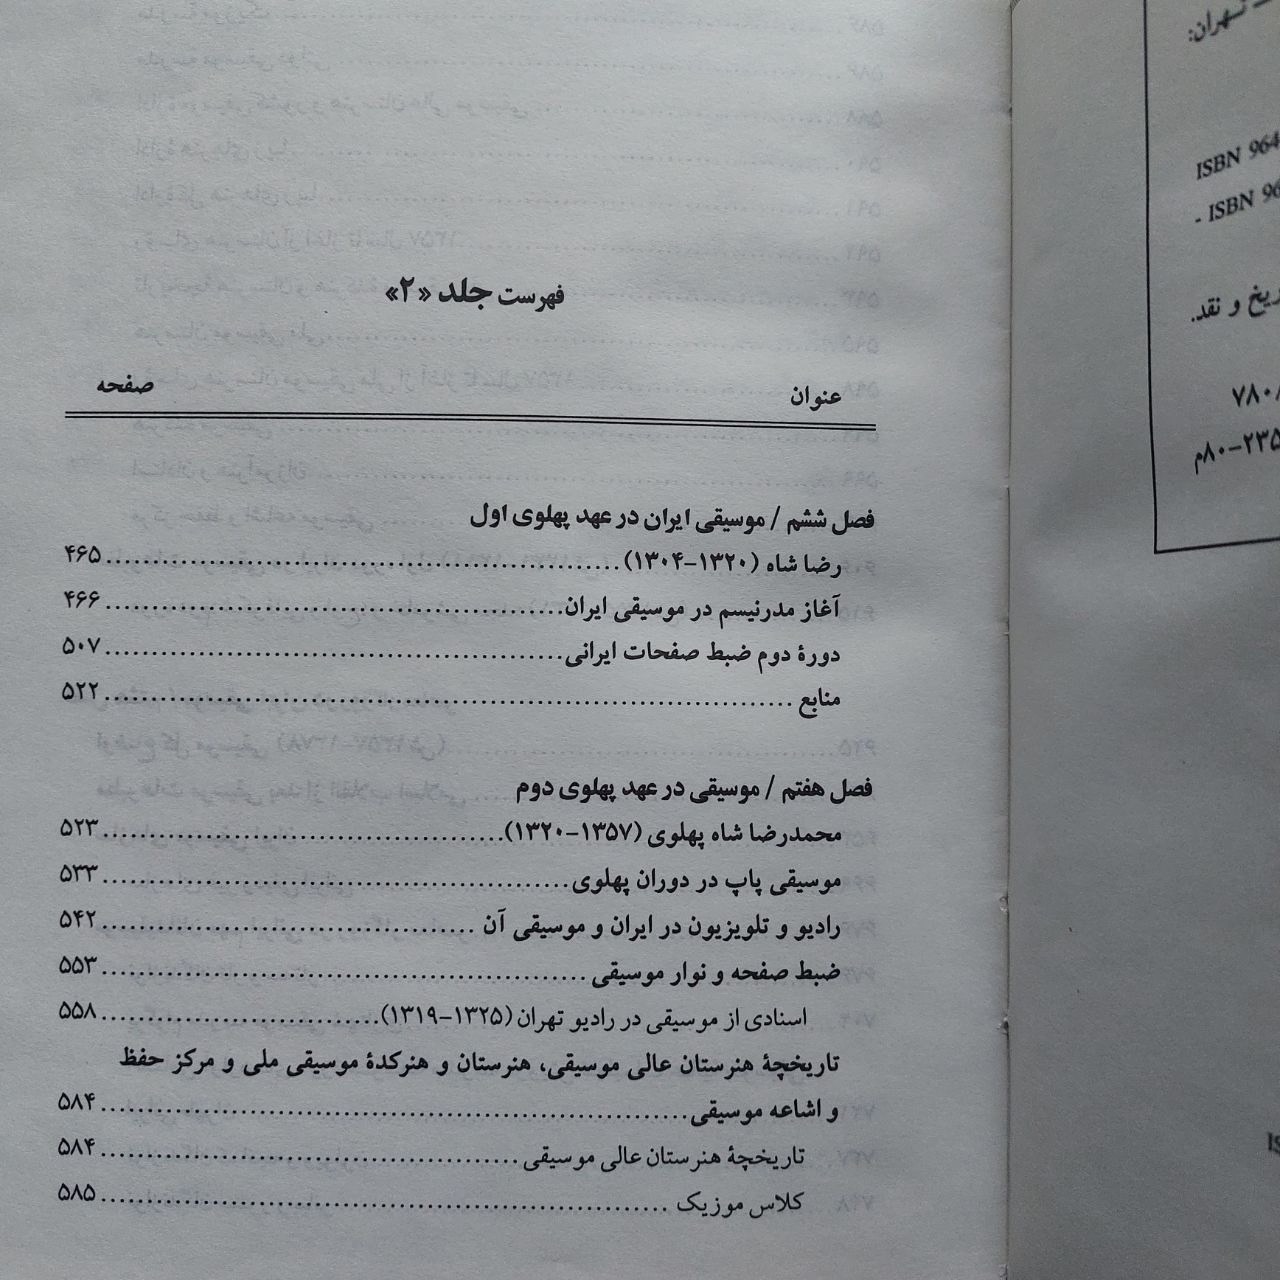 فهرست جلد «۲»
عنوان صفحه
فصل ششم / موسیقی ایران در عهد پهلوی اول
رضا شاه (۱۳۲۰-۱۳۰۴) ........ ۴۶۵
آغاز مدرنیسم در موسیقی ایران ........ ۴۶۶
دورهٔ دوم ضبط صفحات ایرانی ........ ۵۰۷
منابع ........ ۵۲۲
فصل هفتم / موسیقی در عهد پهلوی دوم
محمدرضا شاه پهلوی (۱۳۵۷-۱۳۲۰) ........ ۵۲۳
موسیقی پاپ در دوران پهلوی ........ ۵۳۳
رادیو و تلویزیون در ایران و موسیقی آن ........ ۵۴۲
ضبط صفحه و نوار موسیقی ........ ۵۵۳
اسنادی از موسیقی در رادیو تهران (۱۳۲۵-۱۳۱۹) ........ ۵۵۸
تاریخچهٔ هنرستان عالی موسیقی، هنرستان و هنرکدهٔ موسیقی ملی و مرکز حفظ
و اشاعه موسیقی ........ ۵۸۴
تاریخچهٔ هنرستان عالی موسیقی ........ ۵۸۴
کلاس موزیک ........ ۵۸۵
تهران:
ISBN 964
- ISBN 96
و نقد.
۷۸۰
۸۰-۲۳۵م